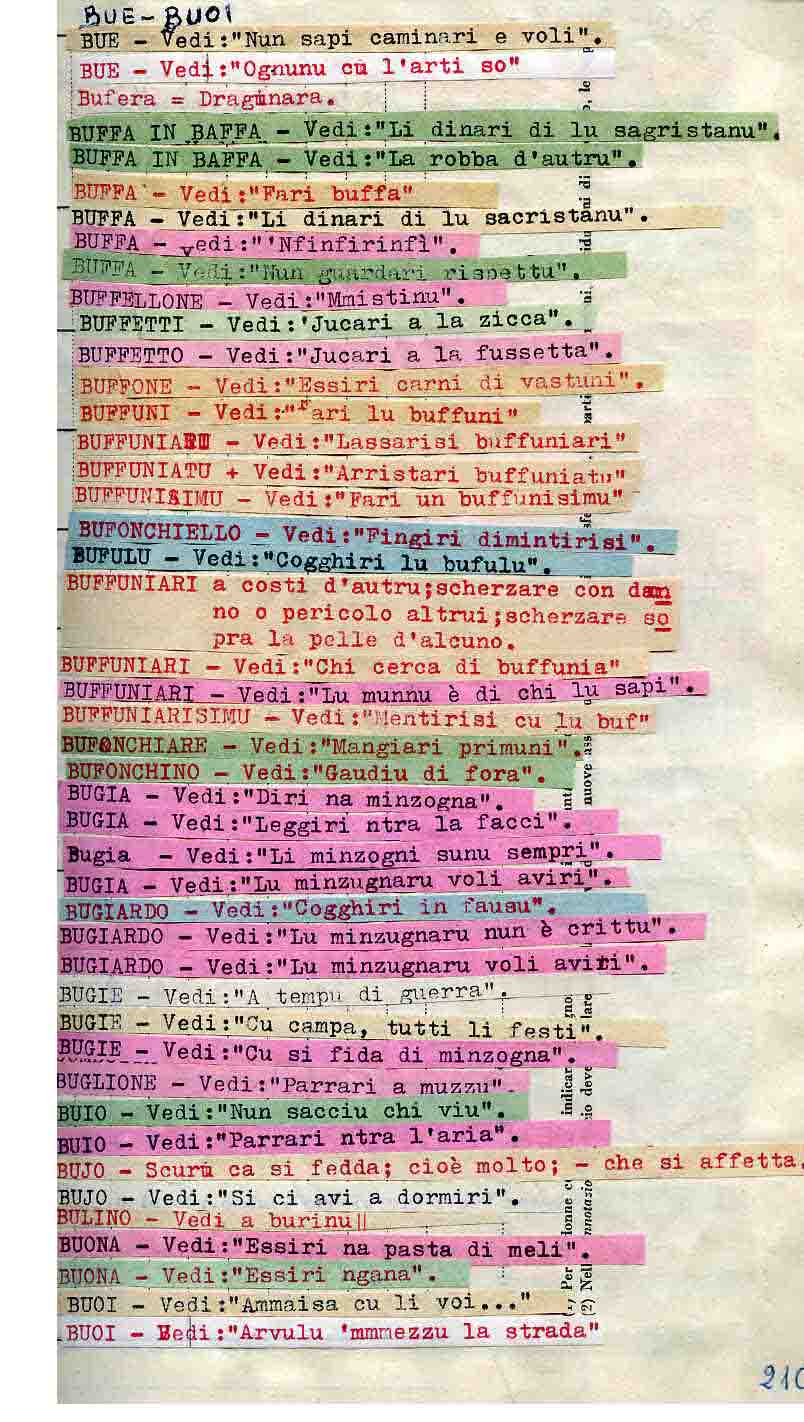 BUE-BUOI
BUE - Vedi:"Nun sapi caminari e voli".
BUE - Vedi:"Ognunu cù l'arti so"
Bufera = Dragùnara.
BUFFA IN BAFFA - Vedi:"Li dinari di lu sagristanu".
BUFFA IN BAFFA - Vedi:"La robba d'autru".
BUFFA - Vedi:"Fari buffa"
BUFFA - Vedi:"Li dinari di lu sacristanu".
BUFFA - Vedi:"'Nfinfirinfì".
BUFFA - Vedi:"Nun guardari rispettu".
BUFFELLONE - Vedi:"Mmistinu".
BUFFETTI - Vedi:'Jucari a la zicca".
BUFFETTO - Vedi:"Jucari a la fussetta".
BUFFONE - Vedi:"Essiri carni di vastuni".
BUFFUNI - Vedi:"Fari lu buffuni"
BUFFUNIARI - Vedi:"Lassarisi buffuniari"
BUFFUNIATU + Vedi:"Arristari buffuniatu"
BUFFUNISIMU - Vedi:"Fari un buffunisimu"
BUFONCHIELLO - Vedi:"Fingiri dimintirisi".
BUFULU - Vedi:"Cogghiri lu bufulu".
BUFFUNIARI a costi d'autru;scherzare con dam
no o pericolo altrui;scherzare so
pra la pelle d'alcuno.
BUFFUNIARI - Vedi:"Chi cerca di buffunia"
BUFFUNIARI - Vedi:"Lu munnu è di chi lu sapi".
BUFFUNIARISIMU - Vedi:"Mentirisi cu lu buf"
BUFONCHIARE - Vedi:"Mangiari primuni".
BUFONCHINO - Vedi:"Gaudiu di fora".
BUGIA - Vedi:"Diri na minzogna".
BUGIA - Vedi:"Leggiri ntra la facci".
Bugia - Vedi:"Li minzogni sunu sempri".
BUGIA - Vedi:"Lu minzugnaru voli aviri".
BUGIARDO - Vedi:"Cogghiri in fausu".
BUGIARDO - Vedi:"Lu minzugnaru nun è crittu".
BUGIARDO - Vedi:"Lu minzugnaru voli aviri".
BUGIE - Vedi:"A tempu di guerra".
BUGIE - Vedi:"Cu campa, tutti li festi".
BUGIE - Vedi:"Cu si fida di minzogna".
BUGLIONE - Vedi:"Parrari a muzzu".
BUIO - Vedi:"Nun sacciu chi viu".
BUIO - Vedi:"Parrari ntra l'aria".
BUJO - Scurù ca si fedda; cioè molto; - che si affetta.
BUJO - Vedi:"Si ci avi a dormiri".
BULINO - Vedi a burinu||
BUONA - Vedi:"Essiri na pasta di meli".
BUONA - Vedi:"Essiri ngana".
BUOI - Vedi:"Ammaisa cu li voi..."
BUOI - Vedi:"Arvulu 'mmmezzu la strada"
210